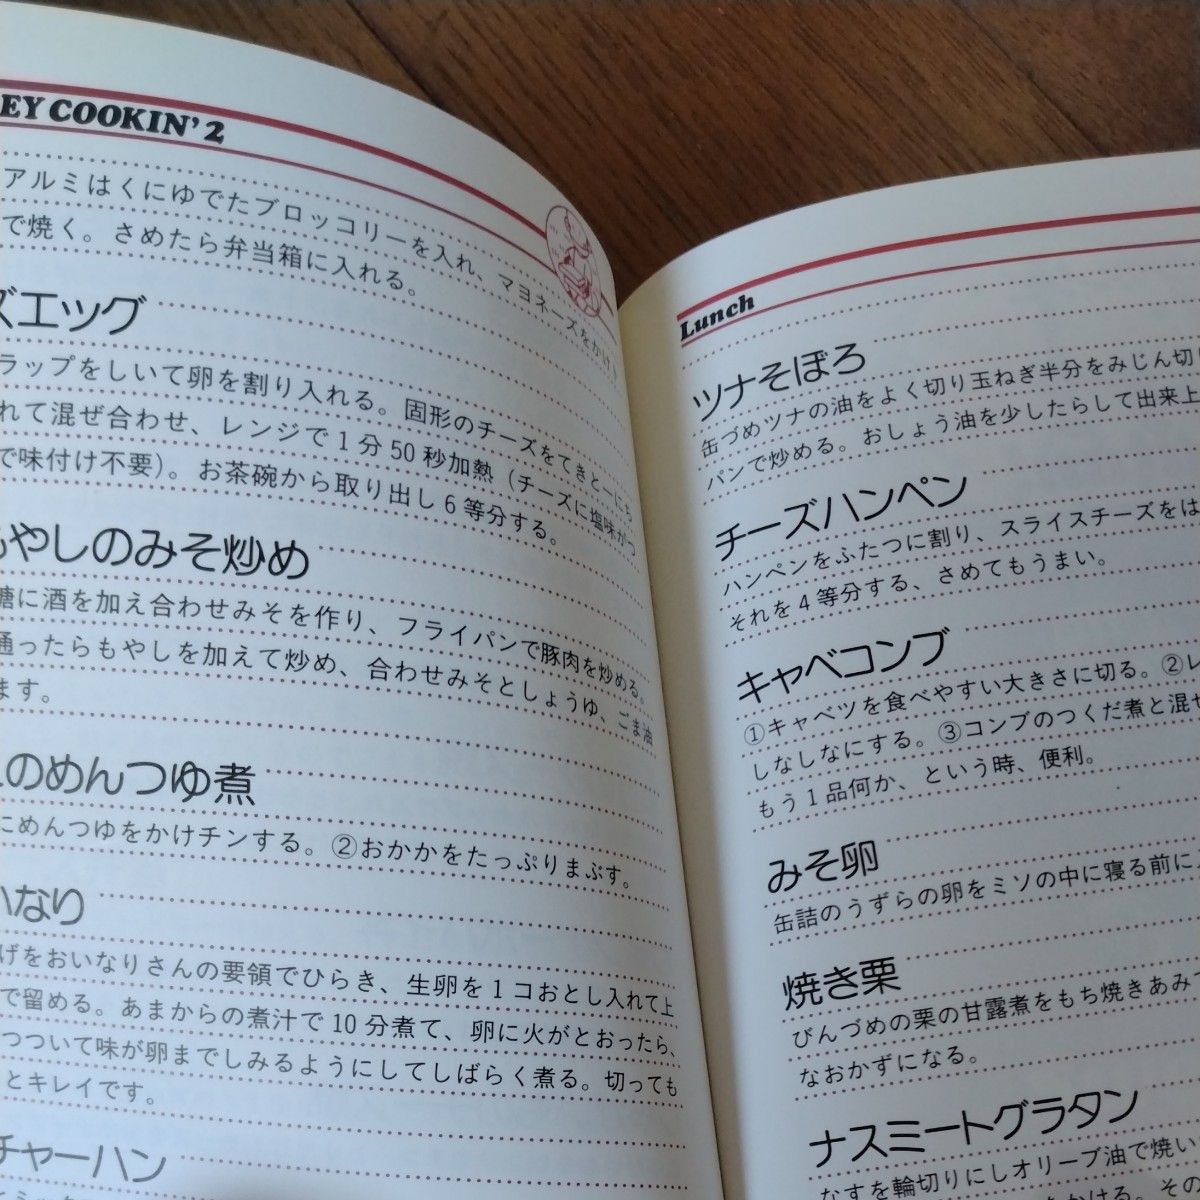 EY COOKIN' 2
アルミはくにゆでたブロッコリーを入れ、マヨネーズをかけ
で焼く。さめたら弁当箱に入れる。
ズエッグ
ラップをしいて卵を割り入れる。固形のチーズをてきとーにち
れて混ぜ合わせ、レンジで1分50秒加熱（チーズに塩味がつ
で味付け不要）。お茶碗から取り出し6等分する。
もやしのみそ炒め
糖に酒を加え合わせみそを作り、フライパンで豚肉を炒める。
通ったらもやしを加えて炒め、合わせみそとしょうゆ、ごま油
ます。
のめんつゆ煮
にめんつゆをかけチンする。②おかかをたっぷりまぶす。
いなり
げをおいなりさんの要領でひらき、生卵を1コおとし入れて上
で留める。あまからの煮汁で10分煮て、卵に火がとおったら、
つついて味が卵までしみるようにしてしばらく煮る。切っても
とキレイです。
チャーハン
Lunch
ツナそぼろ
缶づめツナの油をよく切り玉ねぎ半分をみじん切し
パンで炒める。おしょう油を少したらして出来上
チーズハンペン
ハンペンをふたつに割り、スライスチーズをは
それを4等分する、さめてもうまい。
キャベコンブ
①キャベツを食べやすい大きさに切る。②レ
しなしなにする。③コンブのつくだ煮と混ぜ
もう1品何か、という時、便利。
みそ卵
缶詰のうずらの卵をミソの中に寝る前に
焼き栗
びんづめの栗の甘露煮をもち焼きあみ
なおかずになる。
ナスミートグラタン
なすを輪切りにしオリーブ油で焼い
かける。その